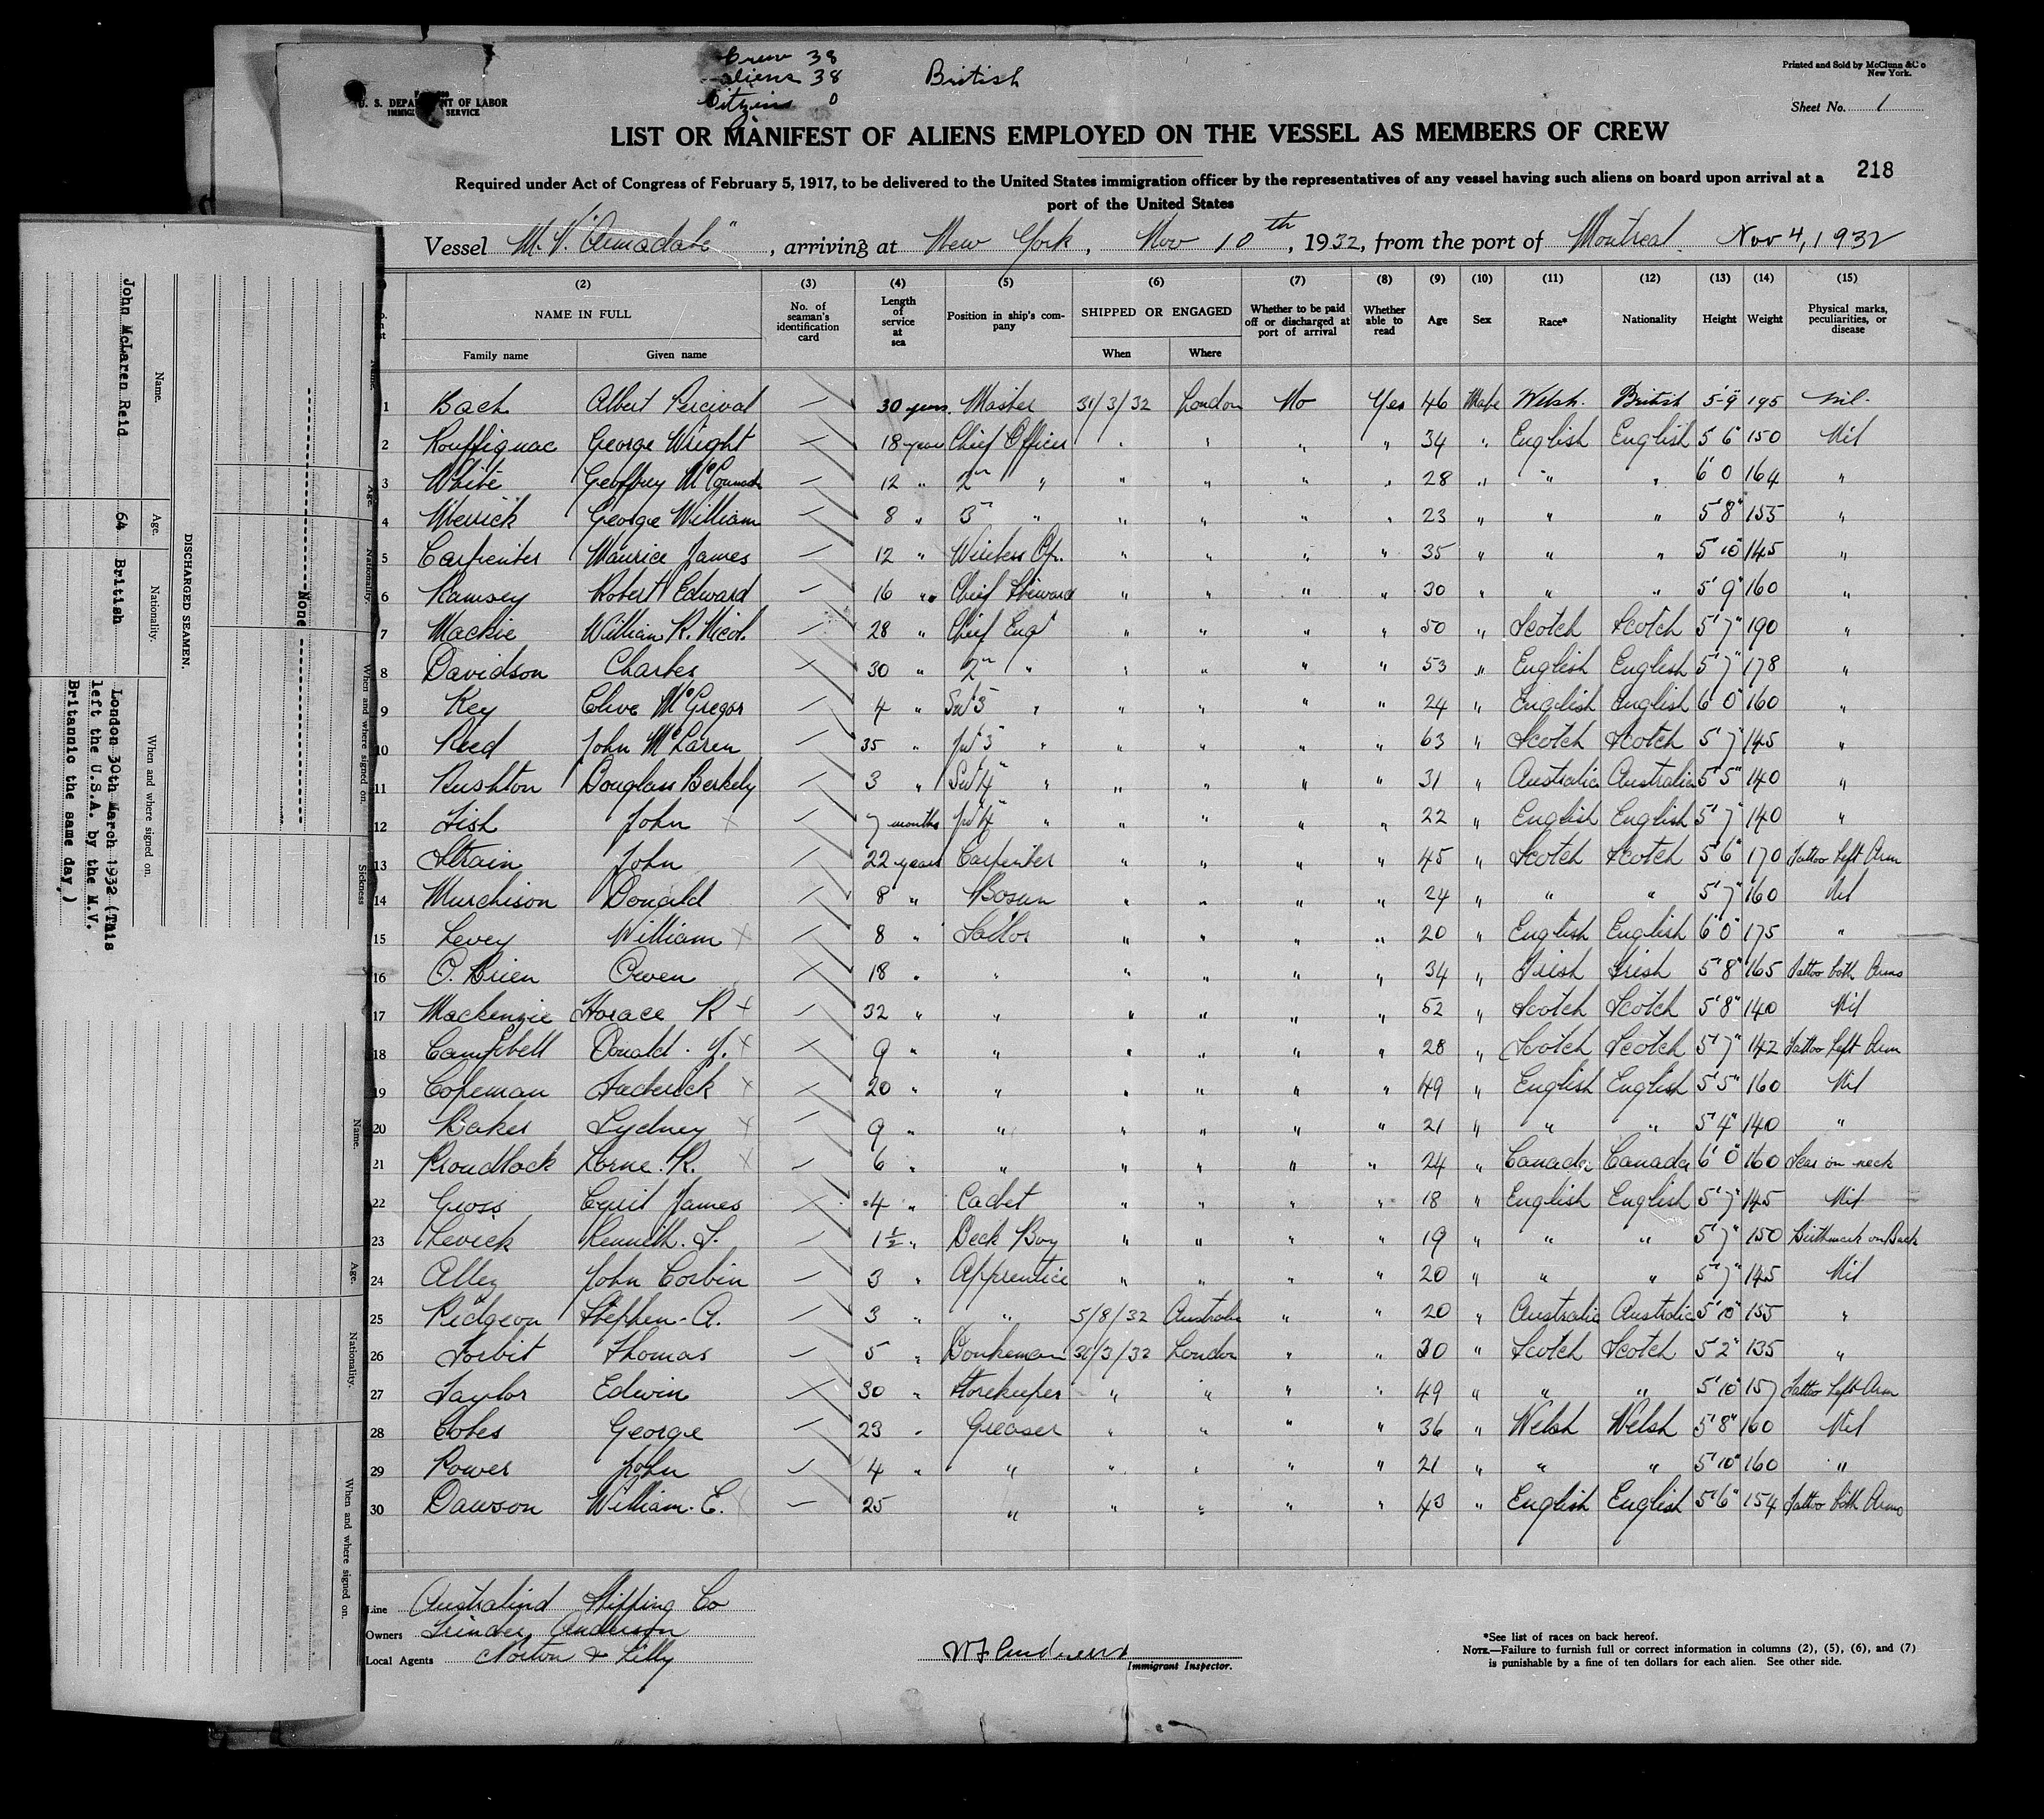 Crew 38
aliens 38
Citizens 0
British
Printed and Sold by McClunn & Co
New York.
U. S. DEPARTMENT OF LABOR
IMMIGRATION SERVICE
Sheet No. 1
LIST OR MANIFEST OF ALIENS EMPLOYED ON THE VESSEL AS MEMBERS OF CREW
218
Required under Act of Congress of February 5, 1917, to be delivered to the United States immigration officer by the representatives of any vessel having such aliens on board upon arrival at a
port of the United States
Vessel M.V. "Armadale", arriving at New York, Nov 10th, 1932, from the port of Montreal. Nov 4, 1932
(2) (3) (4) (5) (6) (7) (8) (9) (10) (11) (12) (13) (14) (15)
NAME IN FULL No. of seaman's identification card Length of service at sea Position in ship's company SHIPPED OR ENGAGED Whether to be paid off or discharged at port of arrival Whether able to read Age Sex Race* Nationality Height Weight Physical marks, peculiarities, or disease
Family name Given name When Where
1 Bach Albert Percival — 30 years Master 31/3/32 London No Yes 46 Male Welsh. British 5-9" 195 nil.
2 Rouffignac George Wright — 18 years Chief Officer " " " " 34 " English English 5 6 150 Nil
3 White Geoffrey — 12 " 2nd " " " " " 28 " " " 6 0 164 "
4 Merrick George William — 8 " 3rd " " " " " 23 " " " 5 8" 155 "
5 Carpenter Maurice James — 12 " Wireless Op. " " " " 35 " " " 5' 10" 145 "
6 Ramsey Robert Edward — 16 " Chief Steward " " " " 30 " " " 5' 9" 160 "
7 Mackie William R. Nicol. — 28 " Chief Engr " " " " 50 " Scotch Scotch 5' 7" 190 "
8 Davidson Charles — 30 " 2nd " " " " " 53 " English English 5' 7" 178 "
9 Key Clive McGregor — 4 " Snr 3 " " " " " 24 " English English 6' 0" 160 "
10 Reed John McLaren — 35 " Jnr 3 " " " " " 63 " Scotch Scotch 5' 7" 145 "
11 Rushton Douglass Berkely — 3 " Snr 4" " " " " " 31 " Australia Australia 5' 5" 140 "
12 Fish John — 7 months Jnr 4" " " " " " 22 " English English 5' 7" 140 "
13 Strain John — 22 years Carpenter " " " " 45 " Scotch Scotch 5' 6" 170 Tattoo Left Arm
14 Murchison Donald — 8 " Bosun " " " " 24 " " " 5' 7" 160 Nil
15 Levey William x — 8 " Sailor " " " " 20 " English English 6' 0" 175 "
16 O. Brien Owen — 18 " " " " " " 34 " Irish Irish 5' 8" 165 Tattoo both Arms
17 Mackenzie Horace R x — 32 " " " " " " 52 " Scotch Scotch 5' 8" 140 Nil
18 Campbell Donald. Y. x — 9 " " " " " " 28 " Scotch Scotch 5' 7" 142 Tattoo Left Arm
19 Copeman Frederick x — 20 " " " " " " 49 " English English 5' 5" 160 Nil
20 Baker Sydney x — 9 " " " " " " 21 " " " 5' 4" 140 "
21 Proudlock Lorne. R. x — 6 " " " " " " 24 " Canada Canada 6' 0" 160 Scar on neck
22 Gross Cyril James — 4 " Cadet " " " " 18 " English English 5' 7" 145 Nil
23 Levick Kenneth. — 1 ½ " Deck Boy " " " " 19 " " " 5' 7" 150 Birthmark on Back
24 Alley John Corbin — 3 " Apprentice " " " " 20 " " " 5' 7" 145 Nil
25 Ridgeon Stephen. A. — 3 " " 5/8/32 Australia " " 20 " Australia Australia 5' 10" 155 "
26 Torbit Thomas — 5 " Donkeman 31/3/32 London " " 30 " Scotch Scotch 5 2" 135 "
27 Taylor Edwin — 30 " Storekeeper " " " " 49 " " " 5' 10" 157 Tattoo Left Arm
28 Cobes George — 23 " Greaser " " " " 36 " Welsh Welsh 5' 8" 160 Nil
29 Power John — 4 " " " " " " 21 " " " 5' 10" 160 "
30 Dawson William. E. — 25 " " " " " 43 " English English 5' 6" 154 Tattoo both Arms
Line Australind Shipping Co
Owners Trinder Anderson
Local Agents Norton & Lilly
Immigrant Inspector.
*See list of races on back hereof.
NOTE.—Failure to furnish full or correct information in columns (2), (5), (6), and (7)
is punishable by a fine of ten dollars for each alien. See other side.
DISCHARGED SEAMEN.
Name. Age. Nationality. When and where signed on.
John McLaren Reid 64 British London 30th March 1932 (This
left the U.S.A. by the M.V.
Britannic the same day.)
Name. Age. Nationality. When and where signed on. Sickness
None
Name. Age. Nationality. When and where signed on.